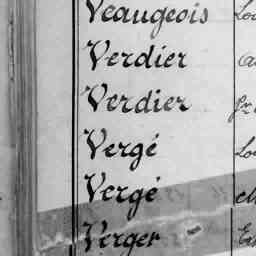 Veaugeois
Verdier
Verdier
Vergé
Vergé
Verger